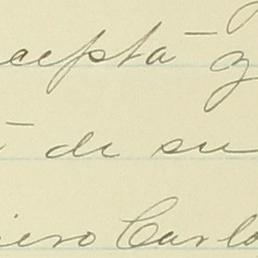 cepta y
de su
iero Carlo